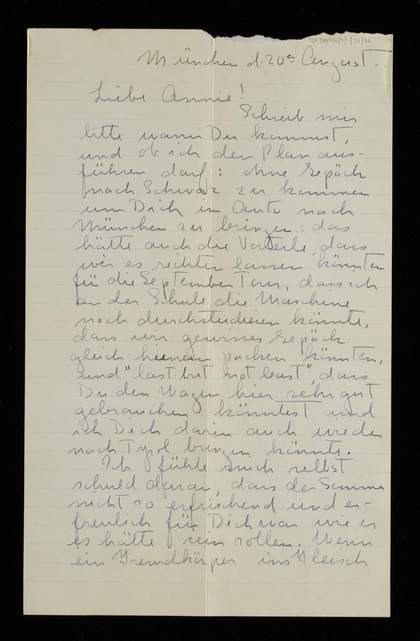 München d. 20ⁿ August.
Liebe Annie!
Schreib mir
bitte wann Du kommst,
und ob ich den Plan aus-
führen darf: ohne Gepäck
nach Schwaz zu kommen
um Dich im Auto nach
München zu bringen: das
hätte auch die Vorteile, dass
wir es richten lassen könnten
für die September Tour, dass ich
an der Schule die Maschine
noch durchstudieren könnte,
dass wir gewisses Gepäck
gleich packen könnten,
und "last but not least" dass
Du den Wagen hier sehr gut
gebrauchen könntest und
ich Dich darin auch wieder
nach Tyrol bringen könnte.
Ich fühle mich selbst
schuld daran, dass der Sommer
nicht so erfrischend und er-
freulich für Dich war wie er
es hätte sein sollen. Wenn
ein Fremdkörper ins Fleisch